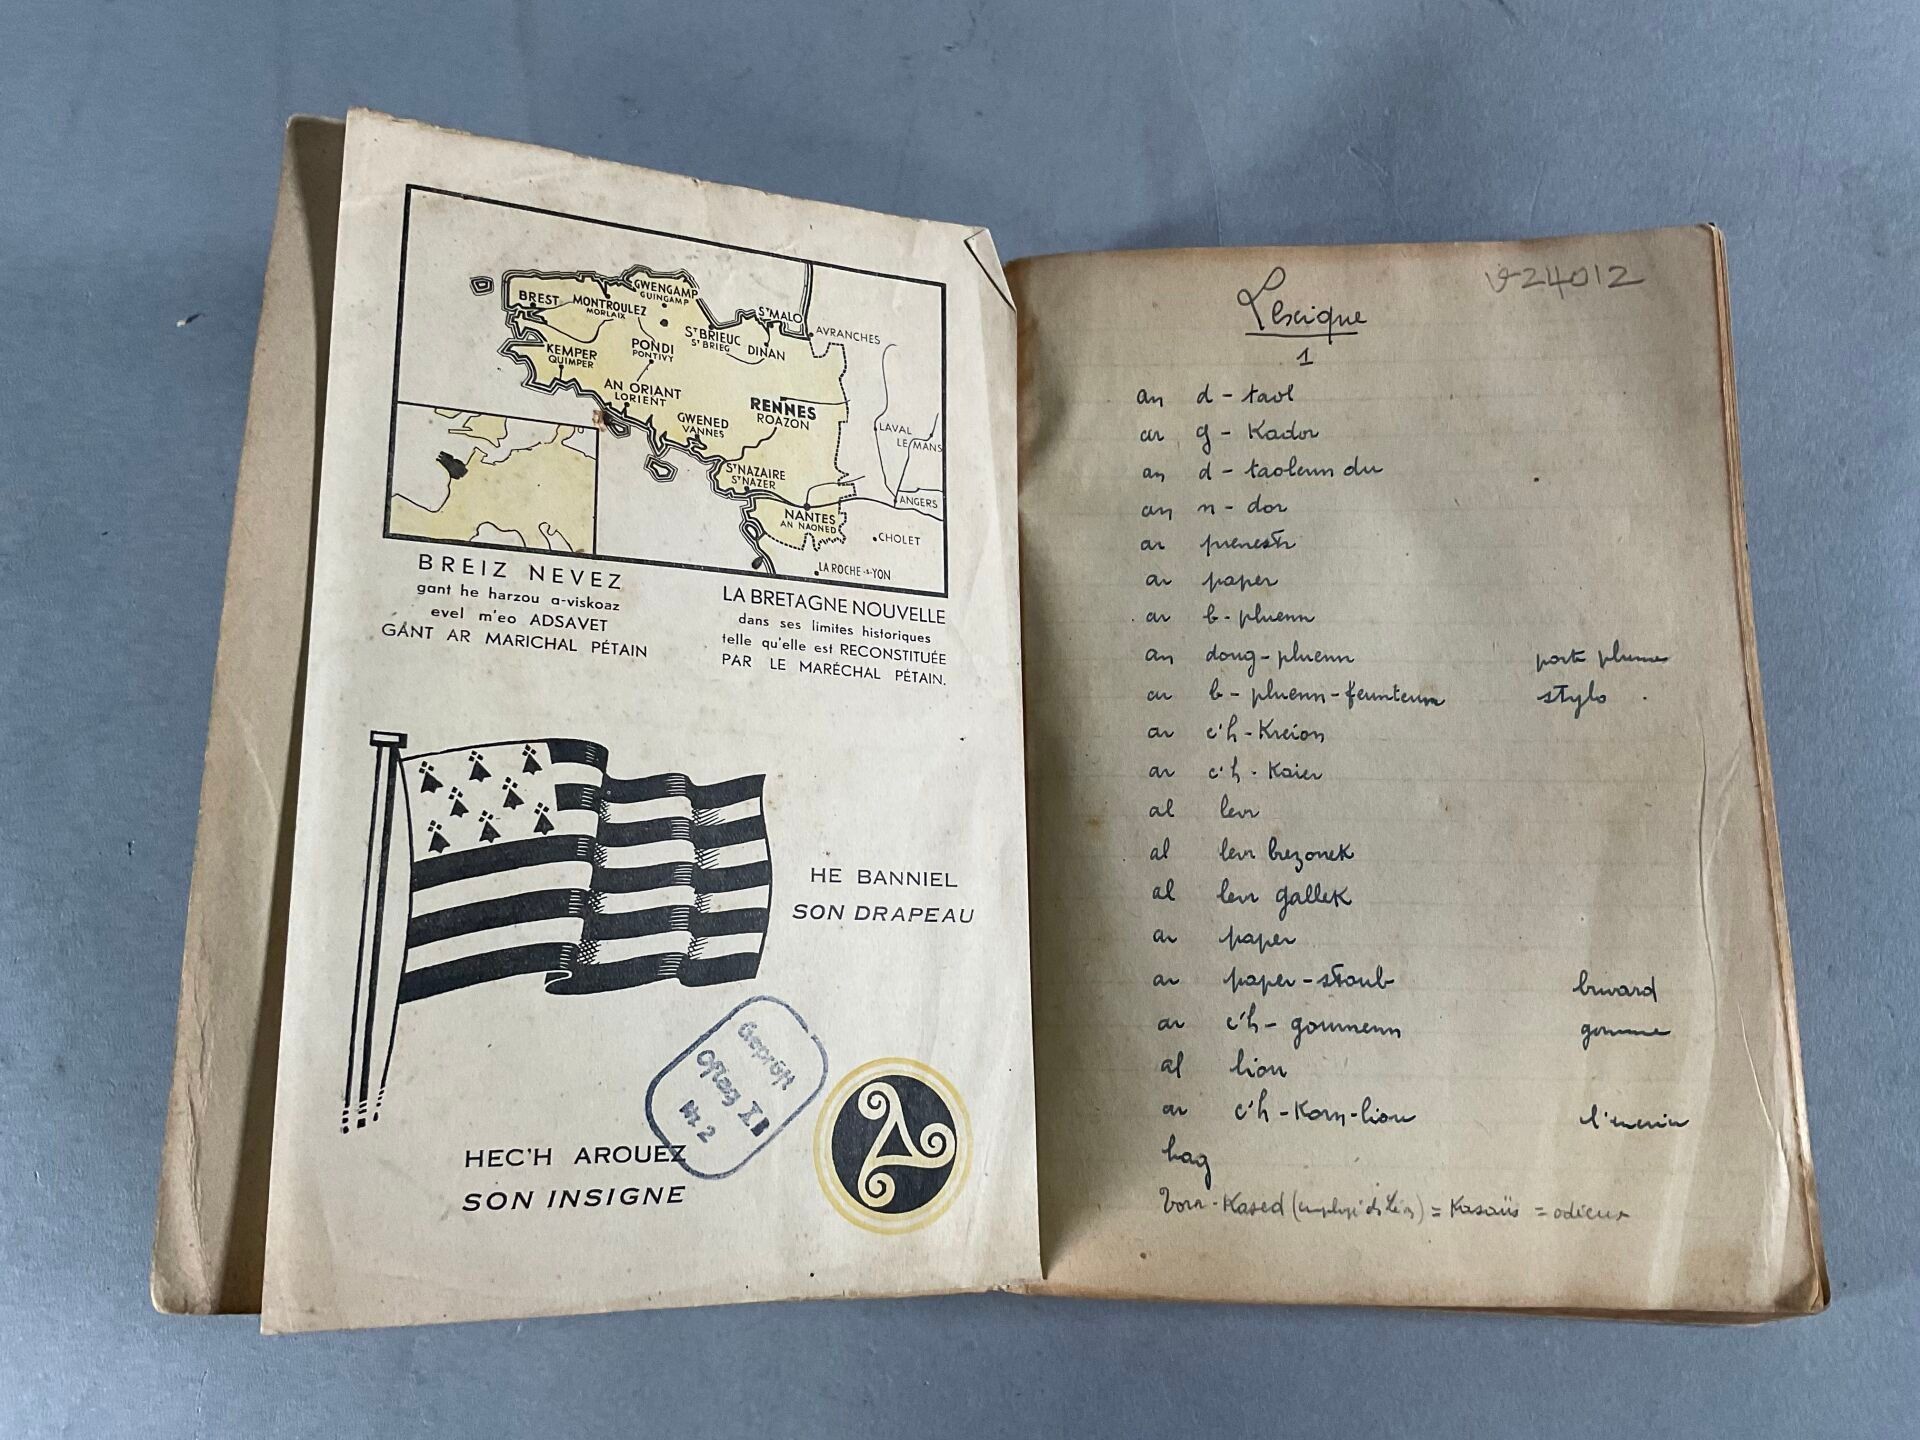 BREST
MONTROULEZ
MORLAIX
GWENGAMP
GUINGAMP
ST BRIEUC
ST BRIEG
ST MALO
DINAN
AVRANCHES
KEMPER
QUIMPER
PONDI
PONTIVY
AN ORIANT
LORIENT
GWENED
VANNES
RENNES
ROAZON
LAVAL
LE MANS
ST NAZAIRE
ST NAZER
NANTES
AN NAONED
ANGERS
CHOLET
LA ROCHE-s-YON
BREIZ NEVEZ
gant he harzou a-viskoaz
evel m'eo ADSAVET
GANT AR MARICHAL PÉTAIN
LA BRETAGNE NOUVELLE
dans ses limites historiques
telle qu'elle est RECONSTITUÉE
PAR LE MARÉCHAL PÉTAIN.
HE BANNIEL
SON DRAPEAU
Geprüft
Oflag XI B
Nr. 2
HEC'H AROUEZ
SON INSIGNE
24012
Lexique
1
an d-taol
ar g-Kador
an d-taolenn du
an n-dor
ar prenestr
ar paper
ar b-pluenn
an doug-pluenn porte plume
ar b-pluenn-feunteun stylo
ar c'h-Kreion
ar c'h-Kaier
al levr
al levr brezonek
al levr gallek
ar paper
ar paper-stoub buvard
ar c'h-goumenn gomme
al liou
ar c'h-Korn-liou l'encrier
hag
Kased = Kasaüs = odieux